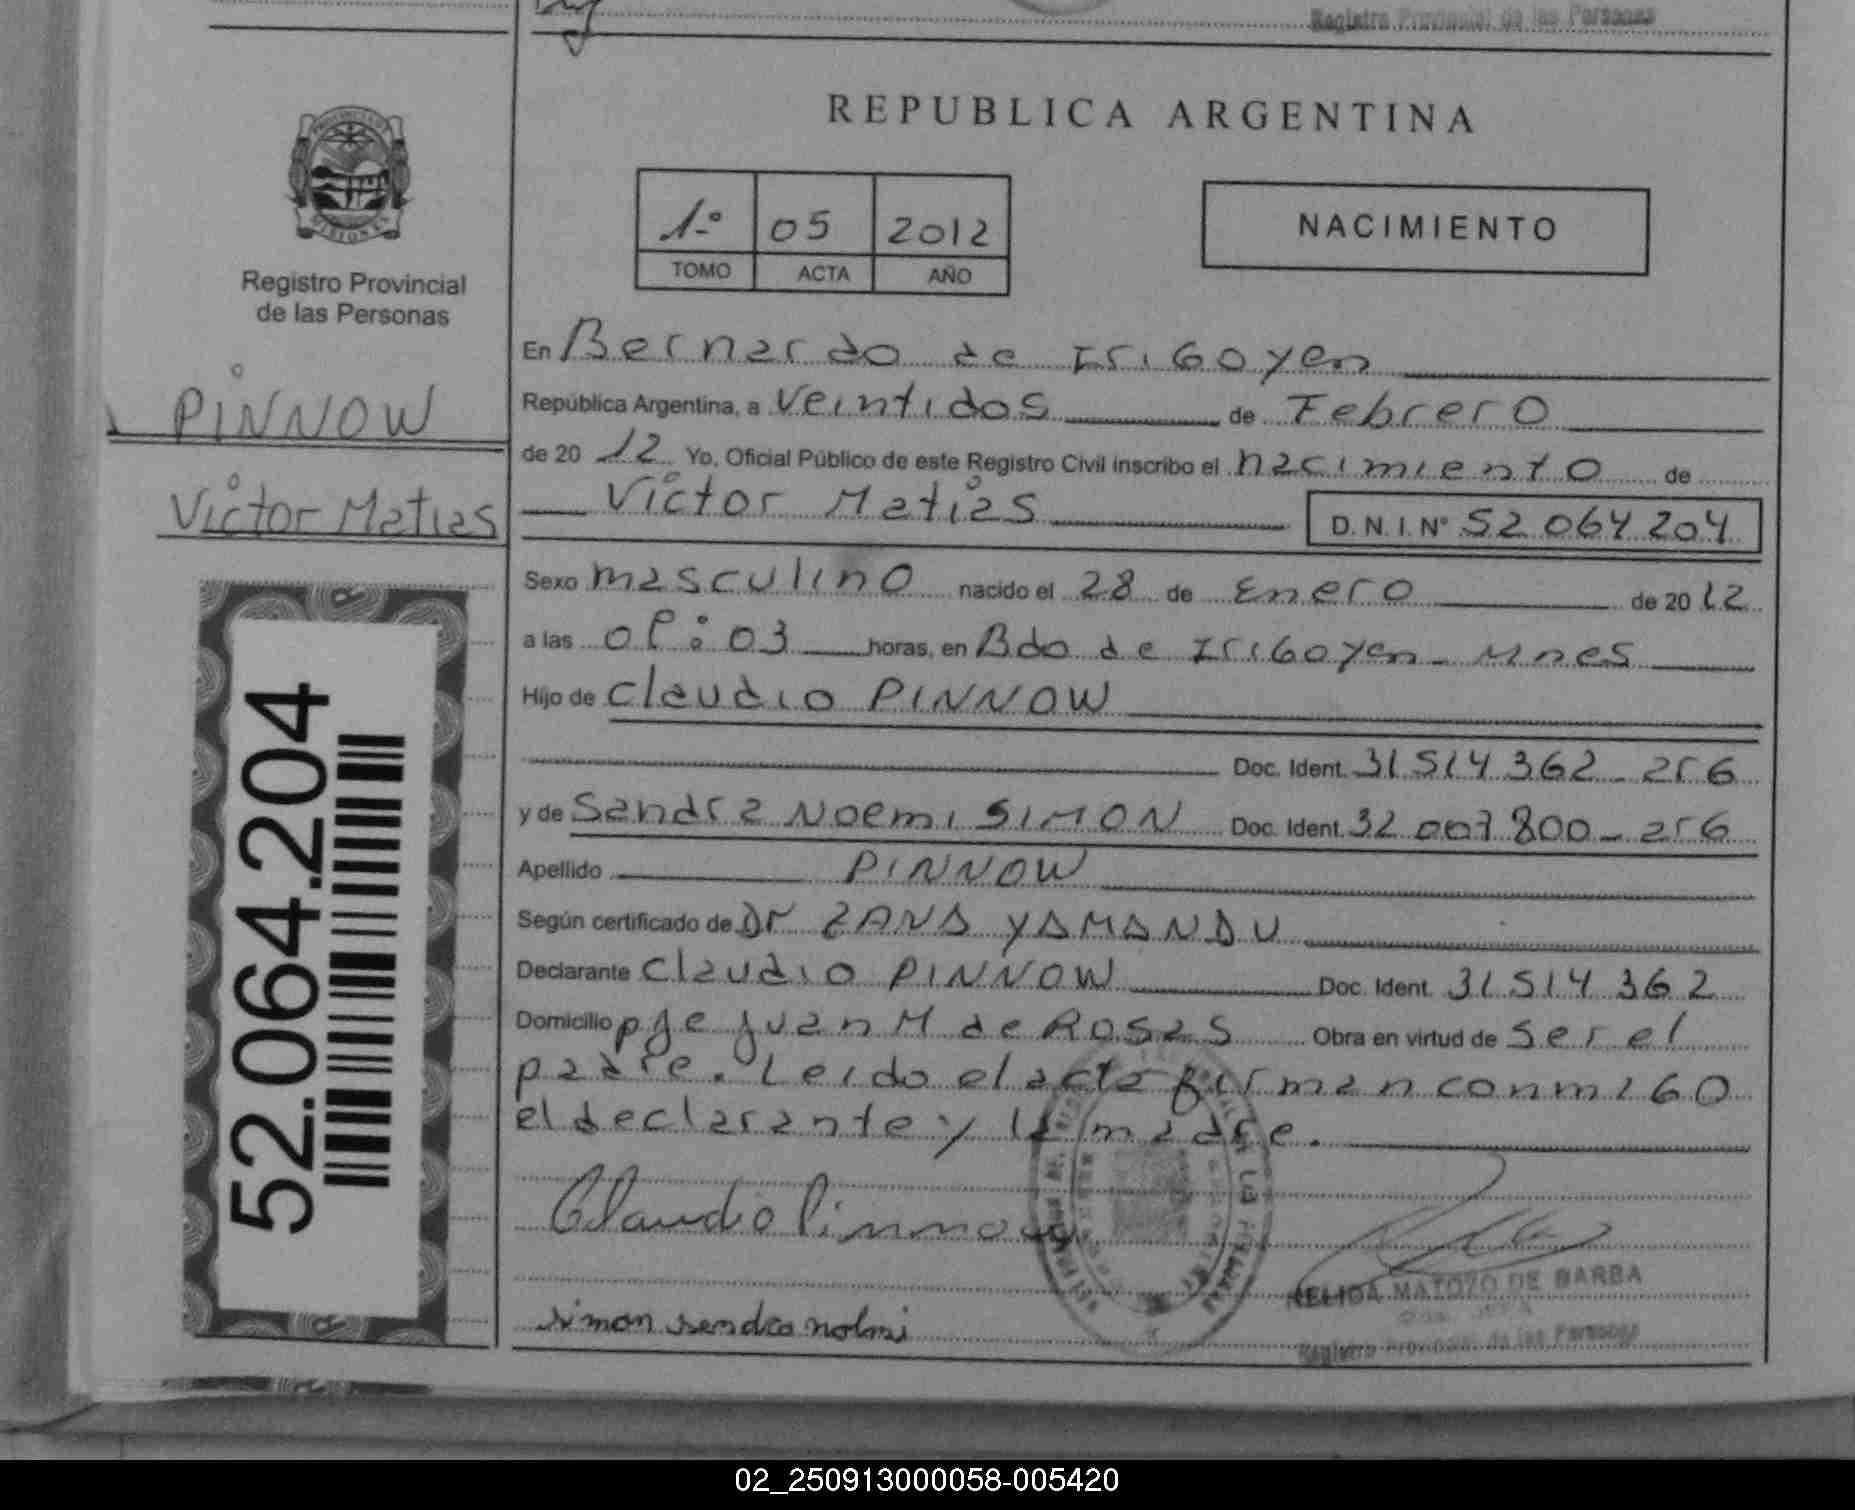 Registro Provincial de las Personas
REPUBLICA ARGENTINA
1º 05 2012
TOMO ACTA AÑO
NACIMIENTO
Registro Provincial
de las Personas
PINNOW
Victor Matias
52.064.204
En Bernardo de Irigoyen
República Argentina, a veintidos de Febrero
de 20 12 Yo, Oficial Público de este Registro Civil inscribo el nacimiento de
Victor Matias D.N.I. Nº 52 064 204
Sexo masculino nacido el 28 de Enero de 20 12
a las : 03 horas, en Bdo de Irigoyen - Mnes
Hijo de Claudio PINNOW
Doc. Ident. 31 514 362 - arG
y de Sandra Noemi SIMON Doc. Ident. 32 007 800 - arG
Apellido PINNOW
Según certificado de Dr ZANA YAMANDU
Declarante Claudio PINNOW Doc. Ident. 31 514 362
Domicilio pje Juan M de Rosas Obra en virtud de ser el
padre. Leido el acta firman conmigo
el declarante y la madre.
Claudio Pinnow
simon sandra noemi
NELIDA MATOZO DE BARBA
Registro Provincial de las Personas
02_250913000058-005420